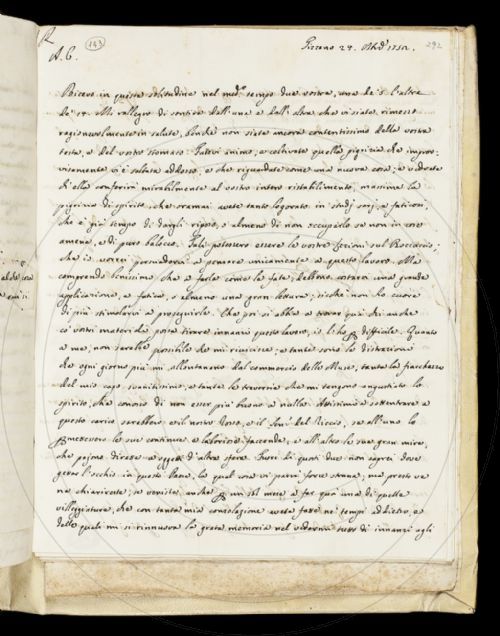 R
A. C.
143
292
Fizzano 24. Ott.e 1752.
Ricevo in questa solitudine nel med.o tempo due vostre, una de' 5. l'altra
de' 17. Mi rallegro di sentire dall'una e dall'altra che vi siate rimesso
ragionevolmente in salute, benchè non siate ancora contentissimo della vostra
testa, e del vostro stomaco. Fatevi animo, e coltivate quella pigrizia che improv-
visamente vi è saltata addosso, e che riguardate come una nuova cosa, e vedrete
ch'ella conferirà mirabilmente al vostro intero ristabilimento, massime la
pigrizia di spirito, che oramai avete tanto logorato in studj serj, e faticosi,
che è più tempo di dargli riposo, o almeno di non occuparlo se non in cose
amene, e di puro balocco. Tali potessero essere le vostre Lezioni sul Ricciardetto,
che io vorrei persuadervi a pensare unicamente a questo lavoro. Ma
comprendo benissimo che a farle come le fate, debbono costarvi una grande
applicazione, e fatica, o almeno una gran lettura, sicchè non ho cuore
di più stimolarvi a proseguirle. Che poi si abbia a trovar quà chi anche
co' vostri materiali possa tirare innanzi questo lavoro, io l'ho per difficile. Quanto
a me, non sarebbe possibile che mi riuscisse; e tante sono le distrazioni
che ogni giorno più mi allontanano dal commercio delle Muse, tanta la fiacchezza
del mio capo svanitissimo, e tante le traversie che mi tengono angustiato lo
spirito, che conosco di non esser più buono a nulla. Attissimi a sottentrare a
questo carico sarebbero e il nostro, e il Sen.r del Riccio, se all'uno lo
permettessero le sue continue e laboriose faccende, e all'altro le sue gran mire,
che pajono dirette a oggetti d'altra sfera. Fuori di questi due non saprei dove
gettar l'occhio in questo Paese, la qual cosa vi parrà forse strana, ma presto ve
ne chiarirete, se venite anche per un sol mese a far quà una di quelle
villeggiature, che con tanta mia consolazione avete fatte ne' tempi addietro, e
delle quali mi si rinnuova la grata memoria nel vedermi tutto dì innanzi agli